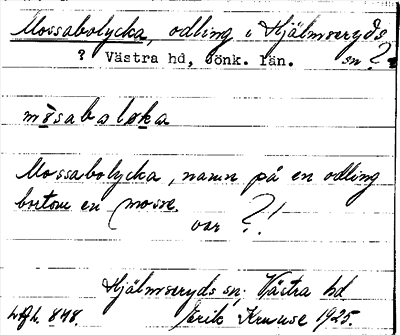 Mossabolycka, odling i Hjälmseryds
? Västra hd, Jönk. län. sn ?
mòsabaløka
Mossabolycka, namn på en odling
bortom en mosse.
var ?!
Hjälmseryds sn; Västra hd
848. Erik Kruuse 1925.